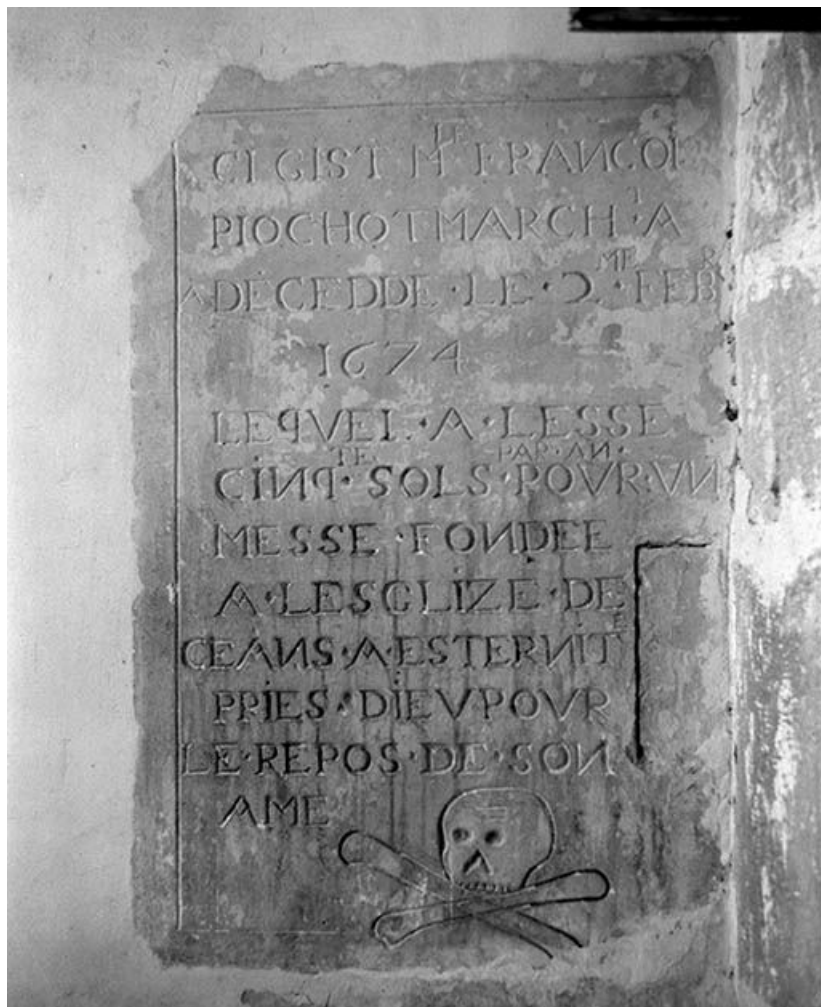 CI GIST M^RE FRANCOI
PIOCHOT MARCH^T A
A DECEDDE · LE · 2^ME · FEB^R
1674
LEQVEL · A · LESSE
CINQ · SOLS · POVR · VN
TE PAR · AN ·
MESSE · FONDEE
A · LESGLIZE · DE
CEANS · A · ESTERNIT^E
PRIES · DIEV POVR
LE · REPOS · DE · SON
AME